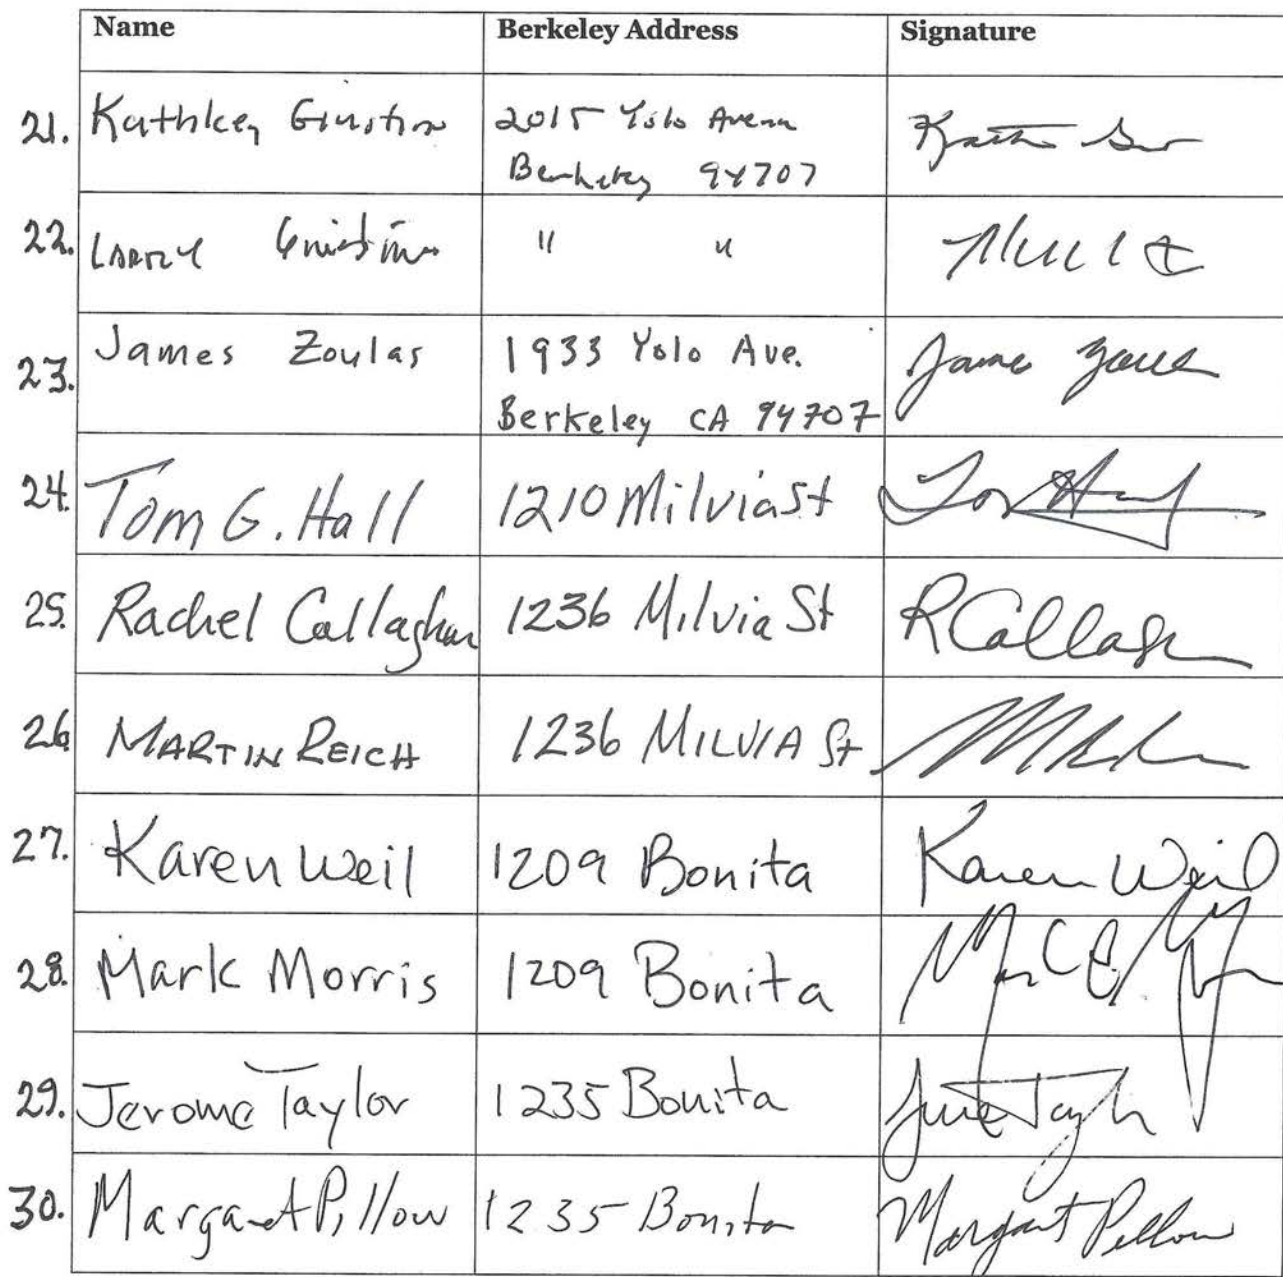 Name Berkeley Address Signature
21. Kathleen 2015 Yolo Avenue
Berkeley 94707
22. " "
23. James Zoulas 1933 Yolo Ave.
Berkeley CA 94707
24. Tom G. Hall 1210 Milvia St
25. Rachel Callaghan 1236 Milvia St R Callagh
26. MARTIN REICH 1236 MILVIA St
27. Karen Weil 1209 Bonita Karen Weil
28. Mark Morris 1209 Bonita
29. Jerome Taylor 1235 Bonita
30. Margaret Pillow 1235 Bonita Margaret Pillow